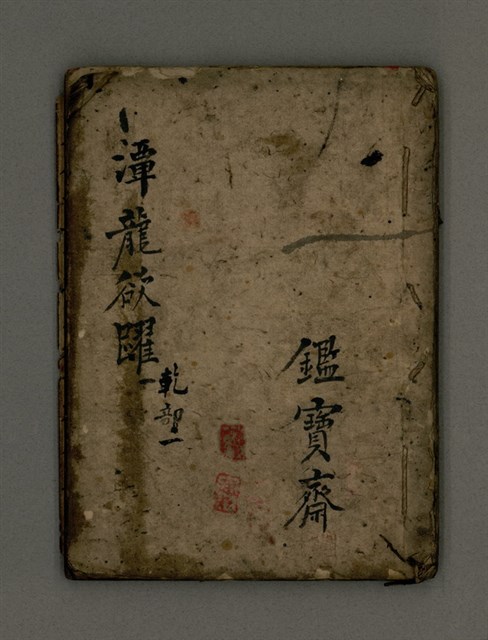 鑑寶齋
潭龍欲躍
乾部一